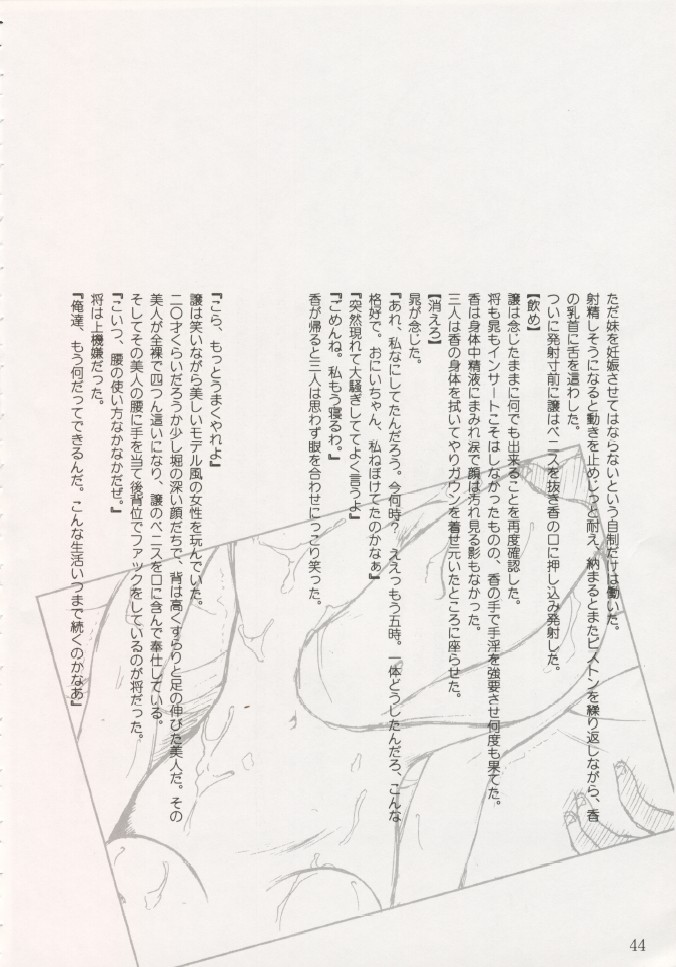 ただ妹を妊娠させてはならないという自制だけは働いた。
射精しそうになると動きを止めじっと耐え、納まるとまたピストンを繰り返しながら、香
の乳首に舌を這わした。
ついに発射寸前に譲はペニスを抜き香の口に押し込み発射した。
【飲め】
譲は念じたままに何でも出来ることを再度確認した。
将も晃もインサートこそはしなかったものの、香の手で手淫を強要させ何度も果てた。
香は身体中精液にまみれ涙で顔は汚れ見る影もなかった。
三人は香の身体を拭いてやりガウンを着せ元いたところに座らせた。
【消えろ】
晃が念じた。
『あれ、私なにしてたんだろう。今何時？　ええっもう五時。一体どうしたんだろ、こんな
格好で。おにいちゃん、私ねぼけてたのかなぁ』
『突然現れて大騒ぎしててよく言うよ』
『ごめんね。私もう寝るわ。』
香が帰ると三人は思わず眼を合わせにっこり笑った。
『こら、もっとうまくやれよ』
譲は笑いながら美しいモデル風の女性を玩んでいた。
二〇才くらいだろうか少し堀の深い顔だちで、背は高くすらりと足の伸びた美人だ。その
美人が全裸で四つん這いになり、譲のペニスを口に含んで奉仕している。
そしてその美人の腰に手を当て後背位でファックをしているのが将だった。
『こいつ、腰の使い方なかなかだぜ。』
将は上機嫌だった。
『俺達、もう何だってできるんだ。こんな生活いつまで続くのかなあ』
44